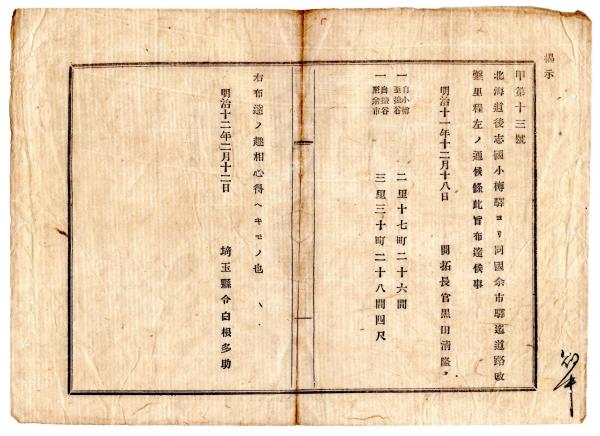 掲示
甲第十三號
北海道後志國小樽驛ヨリ同國余市驛迄道路改
盤里程左ノ通候條此旨布達候事
明治十一年十二月十八日 開拓長官黒田清隆
一 自小樽至塩谷 二里十七町二十六間
一 自塩谷至余市 三里三十町二十八間四尺
右布達ノ趣相心得ヘキモノ也
明治十二年二月十二日 埼玉縣令白根多助